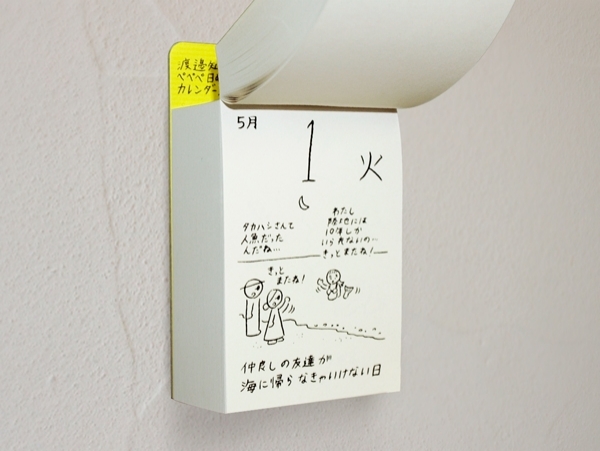 渡邉
ペペペ日め
カレンダー
5月
1
火
タカハシさんて
人魚だった
んだね…
わたし
陸地には
10年しか
いられないの…
きっとまたね!
きっと
またね!
仲良しの友達が
海に帰らなきゃいけない日